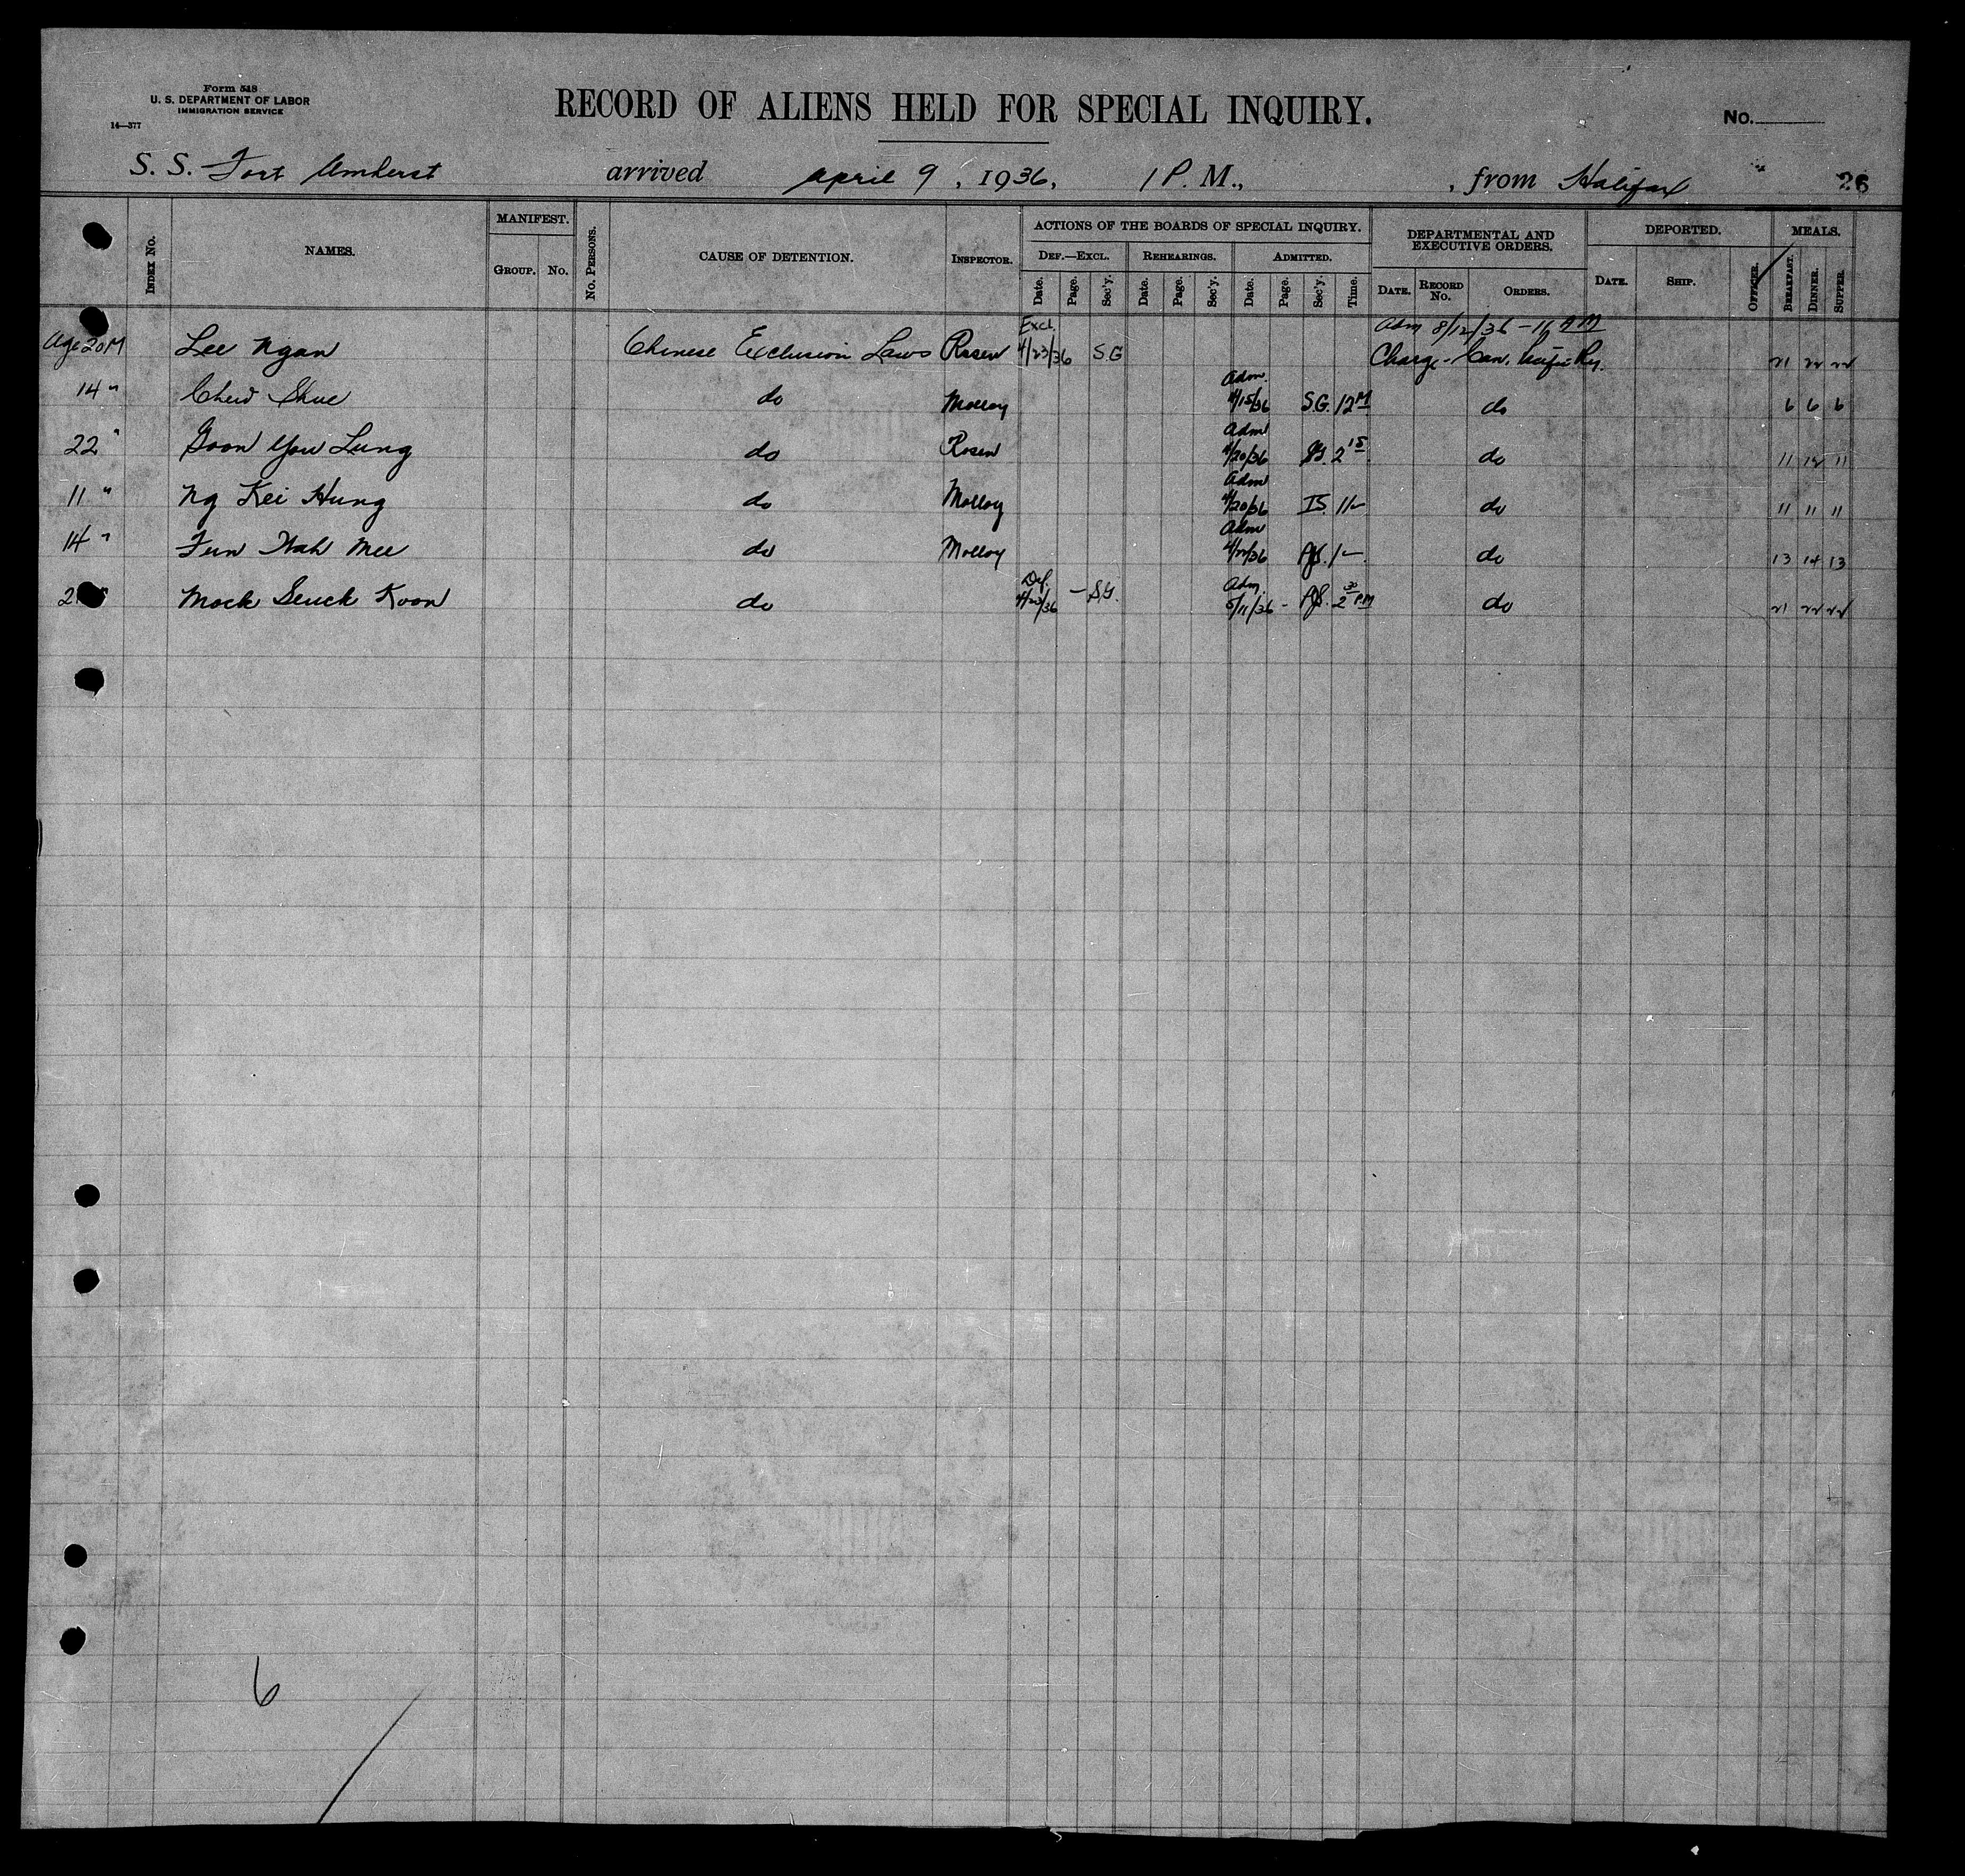 Form 548
U. S. DEPARTMENT OF LABOR
IMMIGRATION SERVICE
14—377
RECORD OF ALIENS HELD FOR SPECIAL INQUIRY.
No.
S. S. Fort Amherst arrived April 9, 1936, 1 P. M., , from Halifax 26
INDEX NO. NAMES. MANIFEST. GROUP. NO. NO. PERSONS. CAUSE OF DETENTION. INSPECTOR. ACTIONS OF THE BOARDS OF SPECIAL INQUIRY. DEPARTMENTAL AND EXECUTIVE ORDERS. DEPORTED. MEALS.
DEF.—EXCL. REHEARINGS. ADMITTED.
Date. Page. Sec'y. Date. Page. Sec'y. Date. Page. Sec'y. Time. DATE. RECORD NO. ORDERS. DATE. SHIP. OFFICER. BREAKFAST. DINNER. SUPPER.
Excl. Adm 8/12/36 - 11 AM
Age 20 M Lee Ngan Chinese Exclusion Laws Rosen 4/23/36 S.G Charge - Can. Pacific Ry. 21 22 22
Adm.
14 " Chew Shue do Molloy 4/15/36 S.G. 12 M do 6 6 6
Adm
22 " Goon You Lung do Rosen 4/20/36 SG. 2 15 do 11 12 11
Adm
11 " Ng Kei Hung do Molloy 4/20/36 IS. 11- do 11 11 11
Adm
14 " Fun Wah Mee do Molloy 4/22/36 1- do 13 14 13
Def. Adm.
Mock Seuck Koon do 4/23/36 - S.G. 5/11/36 - 2 30 PM do 21 22 22
6